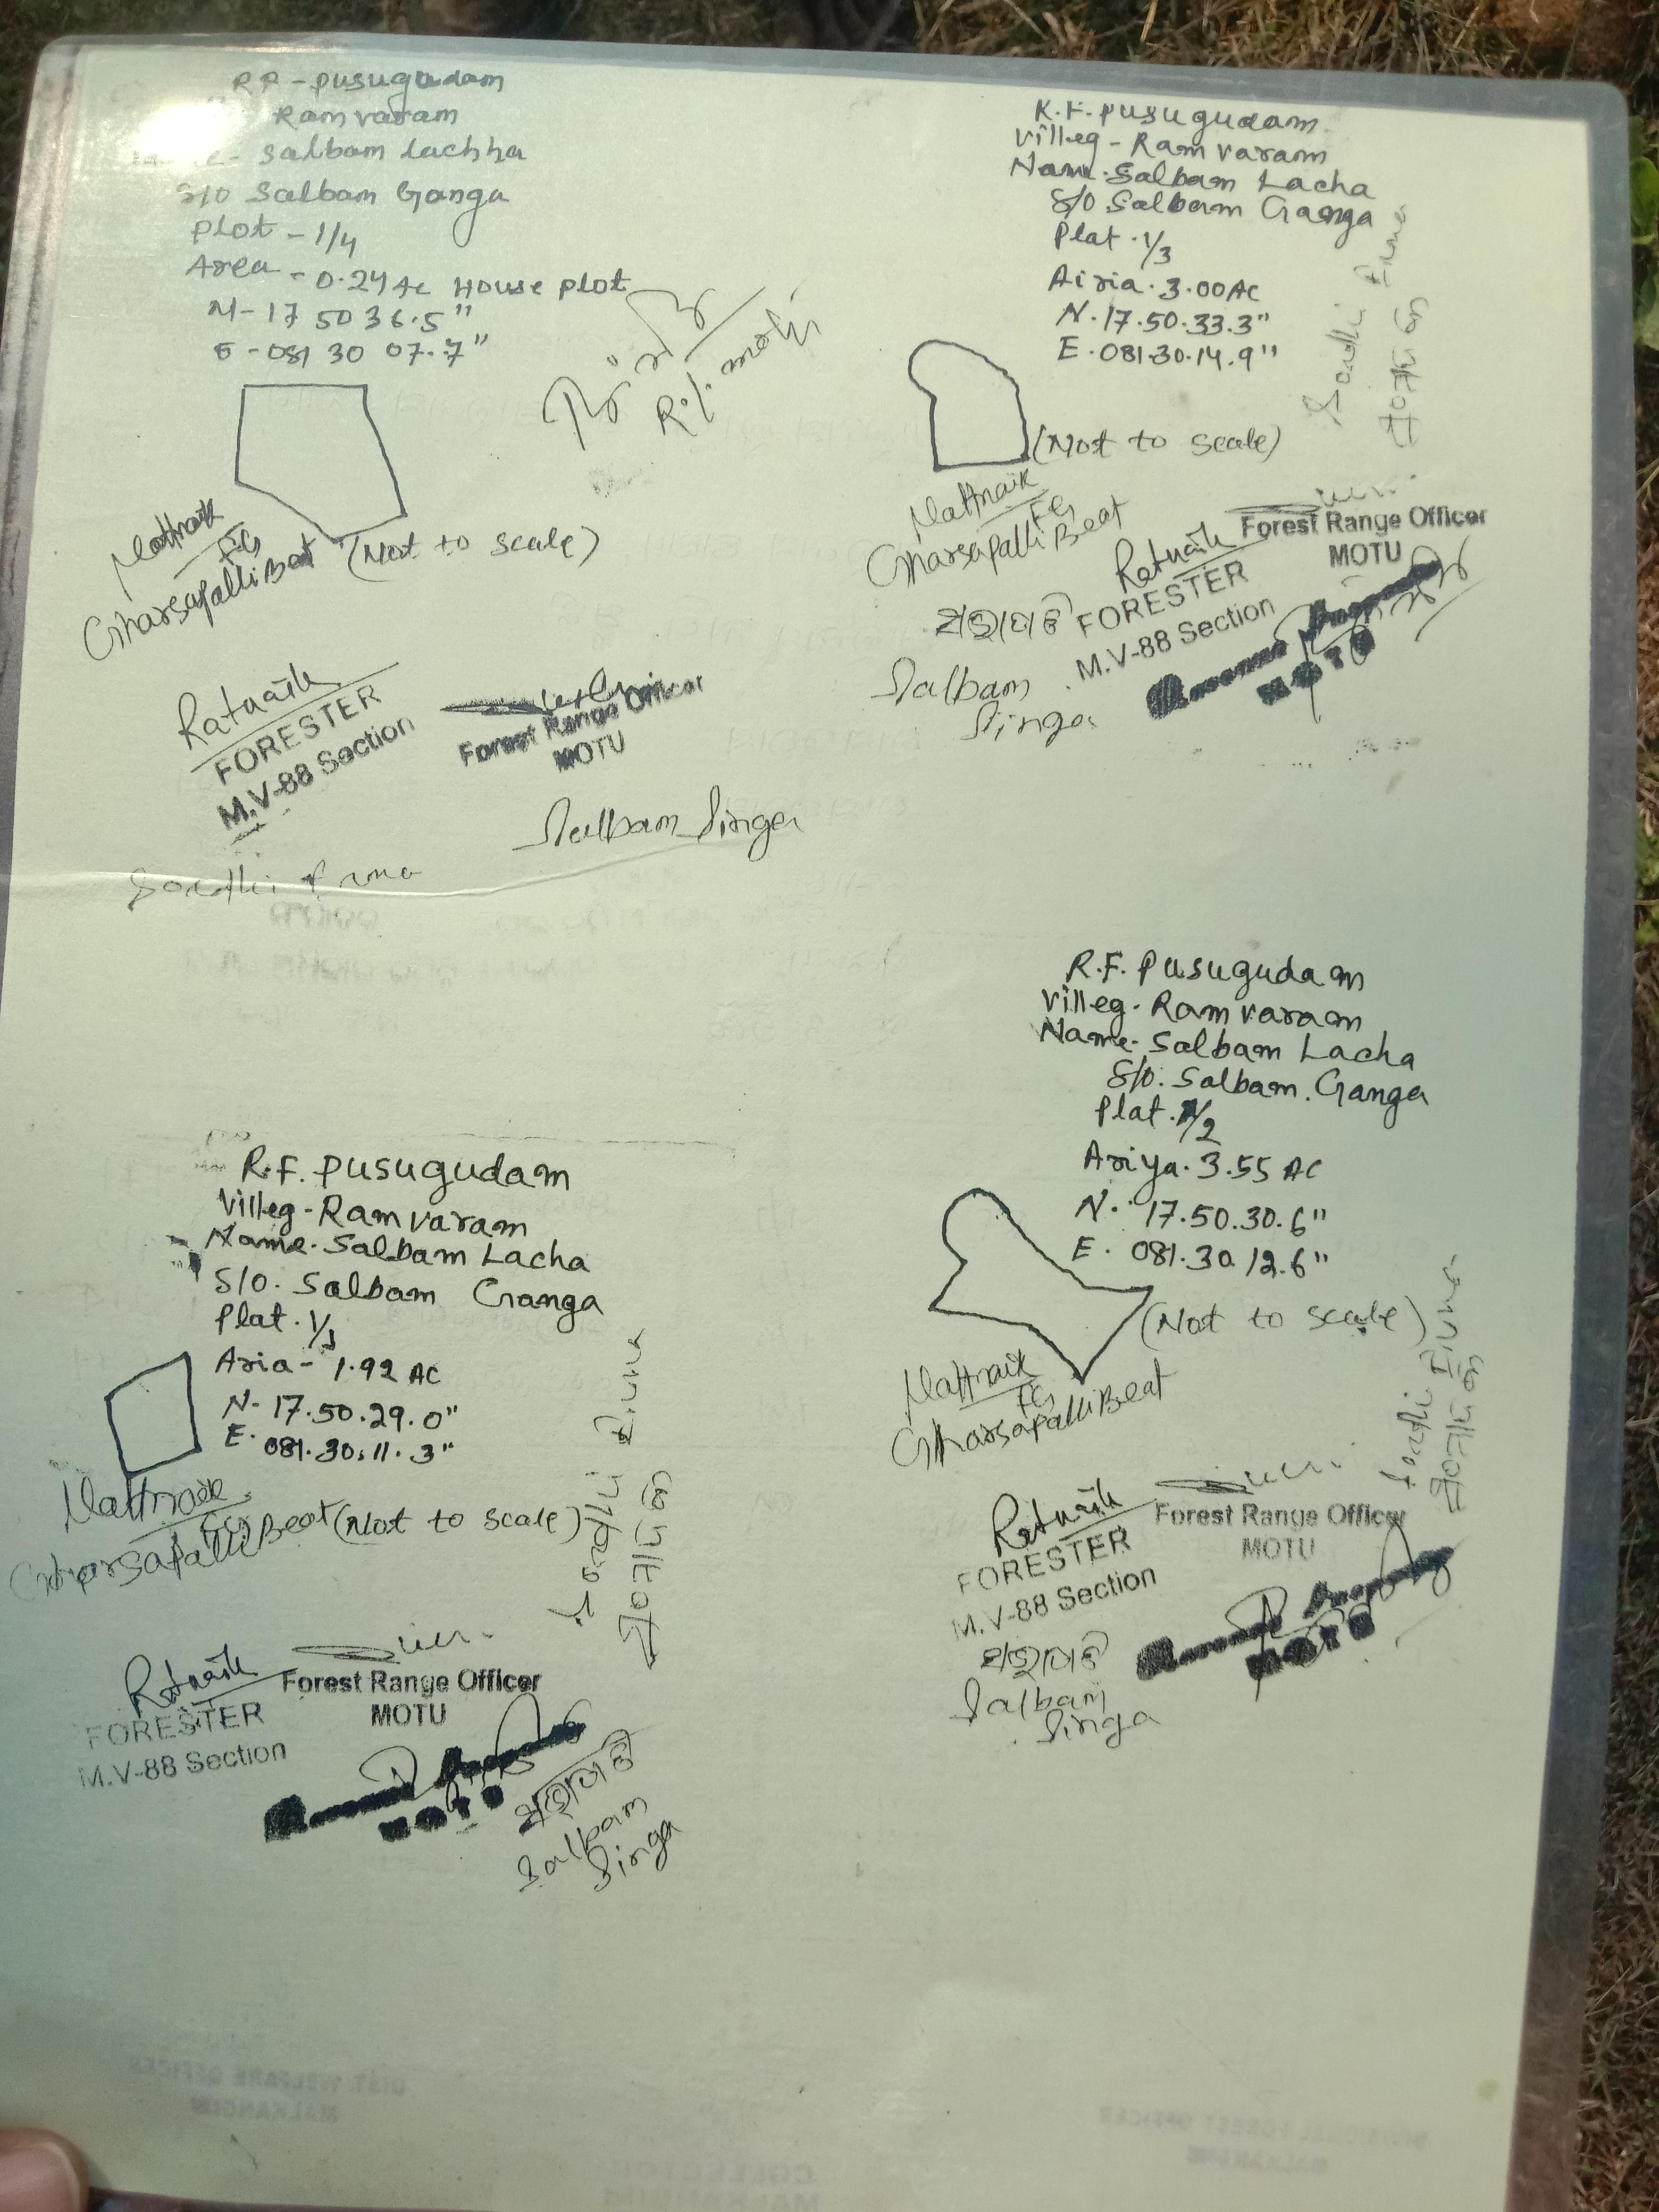 R.F - Pusugudam
Ramvaram
Salbam Lachha
S/O Salbam Ganga
Plot - 1/4
Area - 0.24 Ac House plot
N - 17 50 36.5"
E - 081 30 07.7"
R.I. Motu
(Not to scale)
Mattnaik
FG
Gharsapalli Beat
Ratnaik
FORESTER
M.V-88 Section
Forest Range Officer
MOTU
Salbam Singa
R.F. Pusugudam
Villeg - Ramvaram
Name. Salbam Lacha
S/O Salbam Ganga
Plat . 1/3
Airia . 3.00 AC
N . 17.50.33.3"
E . 081.30.14.9"
(Not to scale)
Mattnaik
FG
Gharsapalli Beat
Ratnaik
FORESTER
M.V-88 Section
Forest Range Officer
MOTU
MOTU
Salbam
Singa
R.F. Pusugudam
Villeg - Ramvaram
Name. Salbam Lacha
S/O. Salbam Ganga
Plat . 1/1
Aria - 1.92 AC
N - 17.50.29.0"
E. 081.30.11.3"
Mattnaik
FG
Gharsapalli Beat (Not to scale)
Ratnaik
FORESTER
M.V-88 Section
Forest Range Officer
MOTU
MOTU
Salbam
Singa
R.F. Pusugudam
Villeg - Ramvaram
Name - Salbam Lacha
S/O. Salbam. Ganga
Plat . 1/2
Ariya . 3.55 AC
N . 17.50.30.6"
E . 081.30.12.6"
(Not to scale)
Mattnaik
FG
Gharsapalli Beat
Ratnaik
FORESTER
M.V-88 Section
Forest Range Officer
MOTU
MOTU
Salbam
Singa